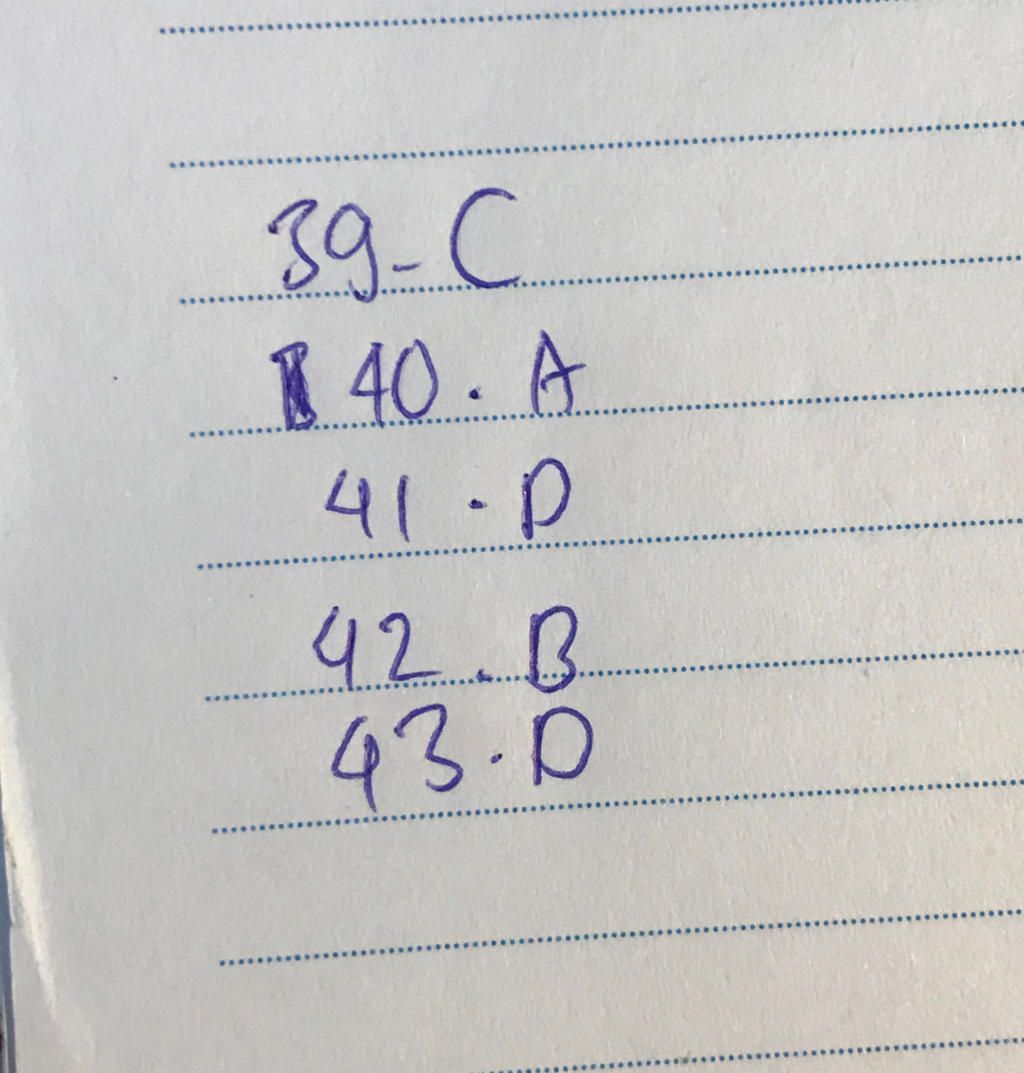 39- C
40. A
41. D
42. B
43. D